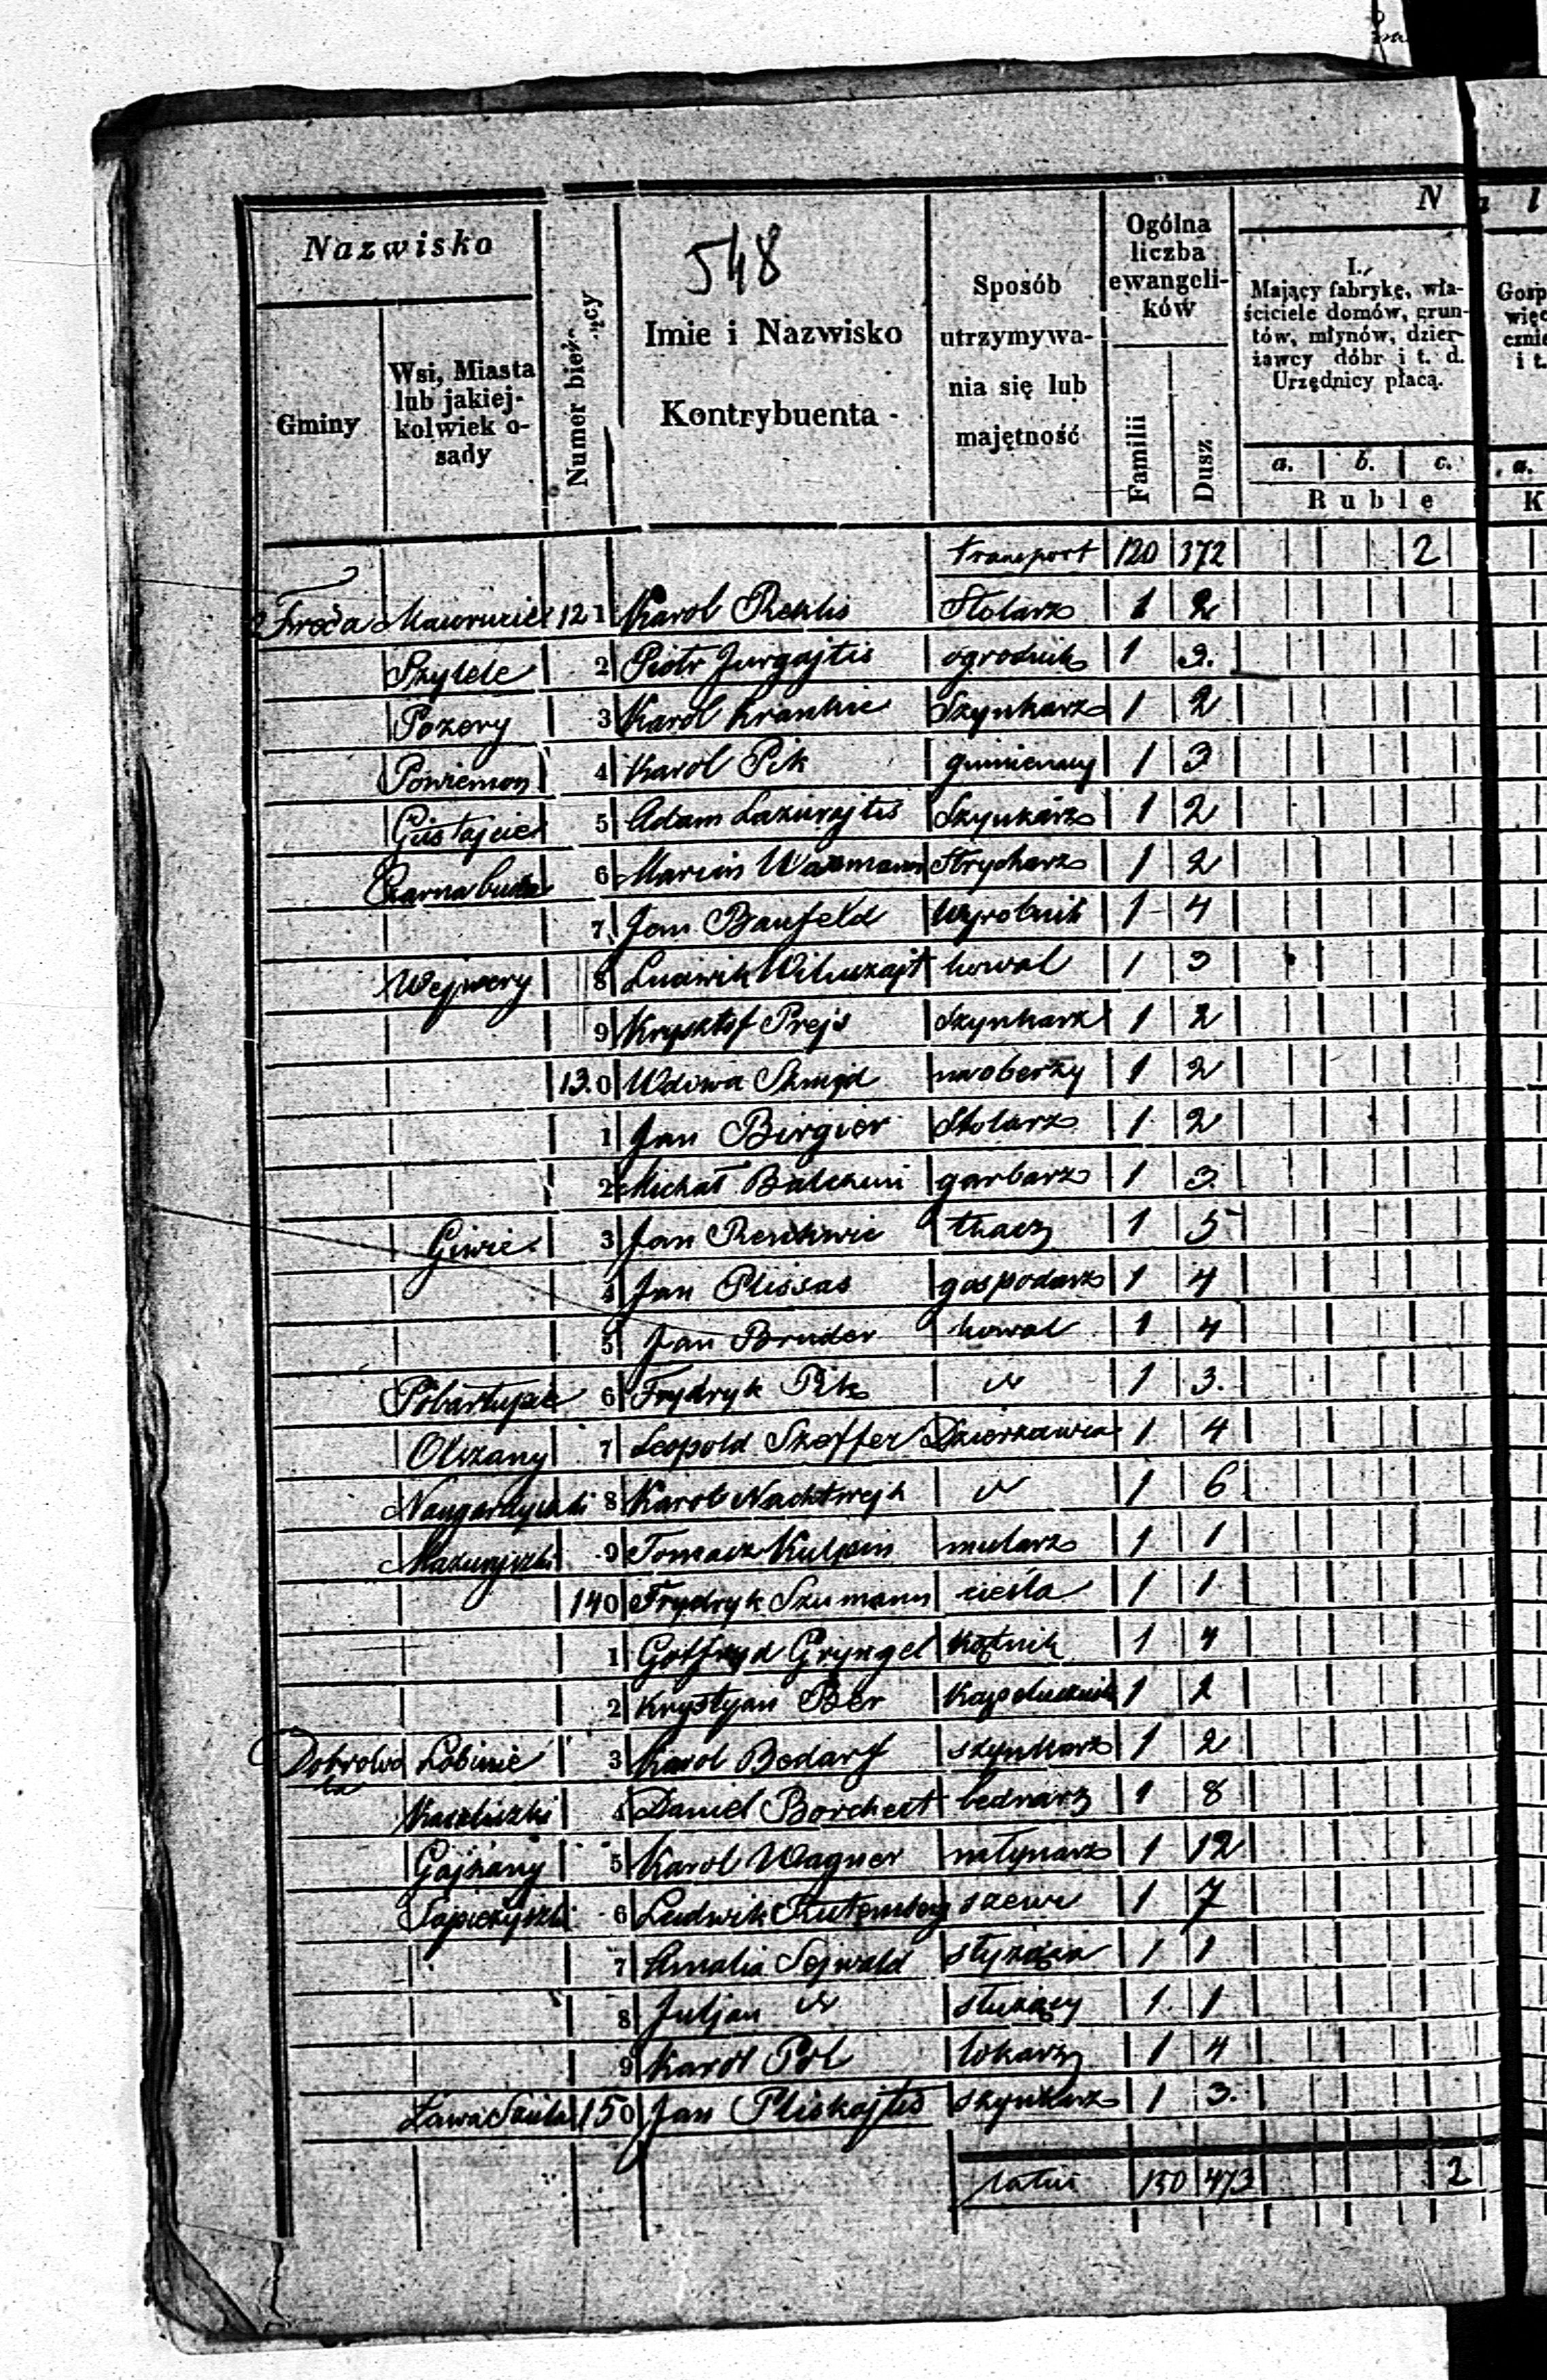 548
Nazwisko
Gminy
Wsi, Miasta lub jakiejkolwiek osady
Numer bieżący
Imie i Nazwisko Kontrybuenta
Sposób utrzymywania się lub majętność
Ogólna liczba ewangelików
Familii
Dusz
N a l
I. Mający fabrykę, właściciele domów, gruntów, młynów, dzierżawcy dóbr i t. d. Urzędnicy płacą.
a. b. c.
Ruble
Gosp
więc
cznie
i t.
a.
K
transport 120 372 2
Freda 121 Karol Reklis Stolarz 1 2
Szylele 2 Piotr Jurgajtis ogrodnik 1 3.
Pozery 3 Karol Krankie Szynkarz 1 2
Poniemon 4 Karol Pik gumienny 1 3
Gustajcie 5 Adam Lazurajtis Szynkarz 1 2
Czarna buda 6 Marcin Waxmann Strycharz 1 2
7 Jan Banfeld Wyrobnik 1 4
Wejwery 8 Ludwik Wiluzajt kowal 1 3
9 Krysztof Prejs Szynkarz 1 2
130 Wdowa Szmyd na oberży 1 2
1 Jan Birgier Stolarz 1 2
2 Michał garbarz 1 3
Giwie 3 Jan tkacz 1 5
4 Jan Plissas gospodarz 1 4
5 Jan Bruder kowal 1 4
6 Frydryk Pik " 1 3.
Olszany 7 Leopold Szeffer Dzierżawca 1 4
8 Karol Nachtwejh " 1 6
9 Tomasz Kulpin mularz 1 1
140 Frydryk Szumann cieśla 1 1
1 Gotfryd Gryngel kątnik 1 4
2 Krystyan Ber 1 2
Dobrowola 3 Karol Bedarf szynkarz 1 2
4 Daniel Borchert bednarz 1 8
Gajzany 5 Karol Wagner młynarz 1 12
Sapieżyszki 6 Ludwik Rutemberg szewc 1 7
7 Amalia Sejwald 1 1
8 Juljan " służący 1 1
9 Karol Pol tokarz 1 4
150 Jan Pliskajtis szynkarz 1 3.
latus 150 473 2